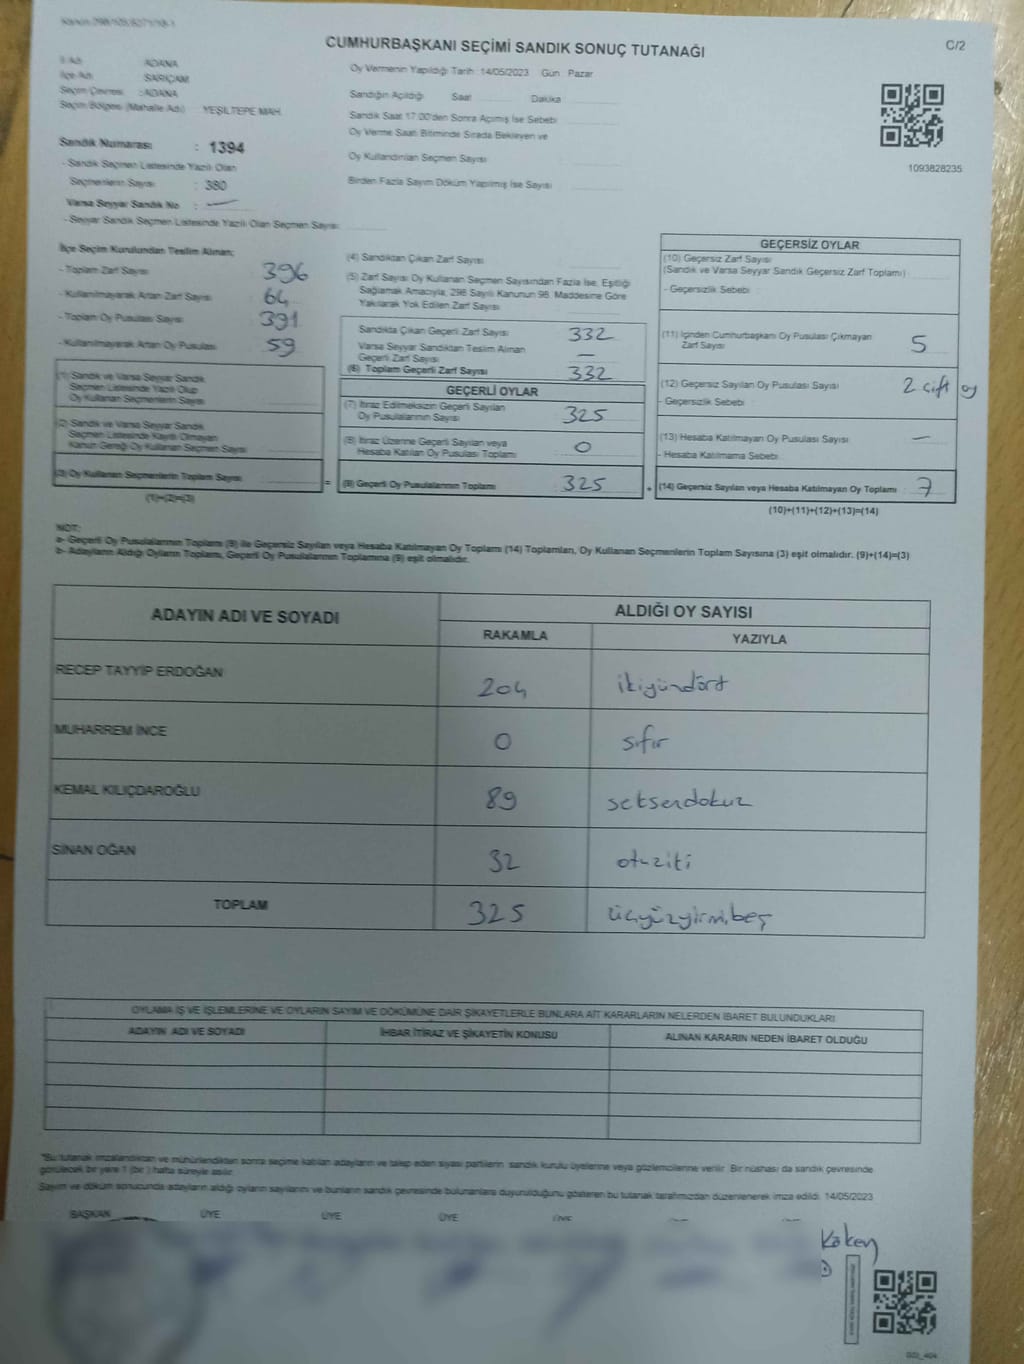 C/2
CUMHURBAŞKANI SEÇİMİ SANDIK SONUÇ TUTANAĞI
İl Adı ADANA
İlçe Adı SARIÇAM
Seçim Çevresi : ADANA
Seçim Bölgesi (Mahalle Adı) : YEŞİLTEPE MAH.
Sandık Numarası : 1394
- Sandık Seçmen Listesinde Yazılı Olan
Seçmenlerin Sayısı : 380
Varsa Seyyar Sandık No : —
- Seyyar Sandık Seçmen Listesinde Yazılı Olan Seçmen Sayısı:
Oy Vermenin Yapıldığı Tarih : 14/05/2023 Gün : Pazar
Sandığın Açıldığı Saat Dakika
Sandık Saat 17:00'den Sonra Açılmış İse Sebebi
Oy Verme Saati Bitiminde Sırada Bekleyen ve
Oy Kullandırılan Seçmen Sayısı
Birden Fazla Sayım Döküm Yapılmış İse Sayısı
1093828235
İlçe Seçim Kurulundan Teslim Alınan;
- Toplam Zarf Sayısı 396
- Kullanılmayarak Artan Zarf Sayısı 64
- Toplam Oy Pusulası Sayısı 391
- Kullanılmayarak Artan Oy Pusulası 59
(1) Sandık ve Varsa Seyyar Sandık
Seçmen Listesinde Yazılı Olup
Oy Kullanan Seçmenlerin Sayısı
(2) Sandık ve Varsa Seyyar Sandık
Seçmen Listesinde Kayıtlı Olmayan
Kanun Gereği Oy Kullanan Seçmen Sayısı
(3) Oy Kullanan Seçmenlerin Toplam Sayısı
(1)+(2)=(3)
(4) Sandıktan Çıkan Zarf Sayısı
(5) Zarf Sayısı Oy Kullanan Seçmen Sayısından Fazla İse, Eşitliği
Sağlamak Amacıyla, 298 Sayılı Kanunun 98. Maddesine Göre
Yakılarak Yok Edilen Zarf Sayısı
Sandıkta Çıkan Geçerli Zarf Sayısı 332
Varsa Seyyar Sandıktan Teslim Alınan
Geçerli Zarf Sayısı —
(6) Toplam Geçerli Zarf Sayısı 332
GEÇERLİ OYLAR
(7) İtiraz Edilmeksizin Geçerli Sayılan
Oy Pusulalarının Sayısı 325
(8) İtiraz Üzerine Geçerli Sayılan veya
Hesaba Katılan Oy Pusulası Toplamı 0
(9) Geçerli Oy Pusulalarının Toplamı 325
GEÇERSİZ OYLAR
(10) Geçersiz Zarf Sayısı
(Sandık ve Varsa Seyyar Sandık Geçersiz Zarf Toplamı)
- Geçersizlik Sebebi :
(11) İçinden Cumhurbaşkanı Oy Pusulası Çıkmayan
Zarf Sayısı 5
(12) Geçersiz Sayılan Oy Pusulası Sayısı 2 çift oy
- Geçersizlik Sebebi
(13) Hesaba Katılmayan Oy Pusulası Sayısı —
- Hesaba Katılmama Sebebi
(14) Geçersiz Sayılan veya Hesaba Katılmayan Oy Toplamı 7
(10)+(11)+(12)+(13)=(14)
NOT:
a- Geçerli Oy Pusulalarının Toplamı (9) ile Geçersiz Sayılan veya Hesaba Katılmayan Oy Toplamı (14) Toplamları, Oy Kullanan Seçmenlerin Toplam Sayısına (3) eşit olmalıdır. (9)+(14)=(3)
b- Adayların Aldığı Oyların Toplamı, Geçerli Oy Pusulalarının Toplamına (9) eşit olmalıdır.
ADAYIN ADI VE SOYADI ALDIĞI OY SAYISI
RAKAMLA YAZIYLA
RECEP TAYYİP ERDOĞAN 204 ikiyüzdört
MUHARREM İNCE 0 sıfır
KEMAL KILIÇDAROĞLU 89 seksendokuz
SİNAN OĞAN 32 otuziki
TOPLAM 325 üçyüzyirmibeş
OYLAMA İŞ VE İŞLEMLERİNE VE OYLARIN SAYIM VE DÖKÜMÜNE DAİR ŞİKAYETLERLE BUNLARA AİT KARARLARIN NELERDEN İBARET BULUNDUKLARI
ADAYIN ADI VE SOYADI İHBAR İTİRAZ VE ŞİKAYETİN KONUSU ALINAN KARARIN NEDEN İBARET OLDUĞU
"Bu tutanak imzalandıktan ve mühürlendikten sonra seçime katılan adayların ve talep eden siyasi partilerin sandık kurulu üyelerine veya gözlemcilerine verilir. Bir nüshası da sandık çevresinde
görülecek bir yere 1 (bir) hafta süreyle asılır.
Sayım ve döküm sonucunda adayların aldığı oyların sayılarını ve bunların sandık çevresinde bulunanlara duyurulduğunu gösteren bu tutanak tarafımızdan düzenlenerek imza edildi. 14/05/2023
BAŞKAN ÜYE ÜYE ÜYE ÜYE